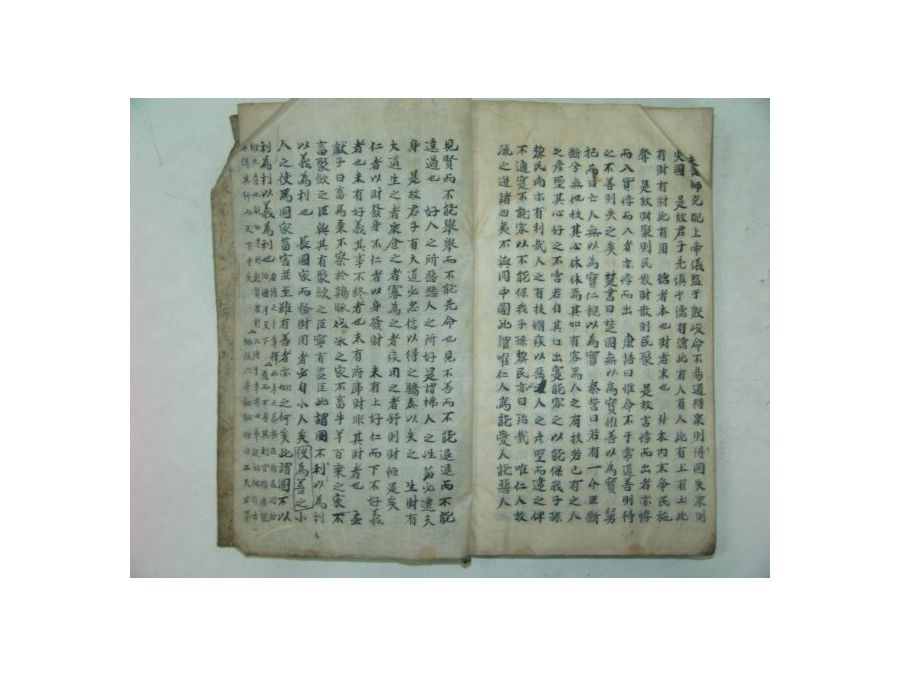 未喪師克配上帝儀監于殷峻命不易道得衆則得國失衆則
失國 是故君子先慎乎德有德此有人有人此有土有土此
有財有財此有用 德者本也財者末也 外本內末爭民施
奪 是故財聚則民散財散則民聚 是故言悖而出者亦悖
而入貨悖而入者亦悖而出 康誥曰惟命不于常道善則得
之不善則失之矣 楚書曰楚國無以為寶惟善以為寶 舅
犯曰亡人無以為寶仁親以為寶 秦誓曰若有一介臣斷
斷兮無他技其心休休焉其如有容焉人之有技若己有之人
之彦聖其心好之不啻若自其口出寔能容之以能保我子孫
黎民尚亦有利哉人之有技媢疾以惡之人之彦聖而違之俾
不通寔不能容以不能保我子孫黎民亦曰殆哉 唯仁人放
流之迸諸四夷不與同中國此謂唯仁人為能愛人能惡人
見賢而不能舉舉而不能先命也見不善而不能退退而不能
遠過也 好人之所惡惡人之所好是謂拂人之性菑必逮夫
身 是故君子有大道必忠信以得之驕泰以失之 生財有
大道生之者衆食之者寡為之者疾用之者舒則財恒足矣
仁者以財發身不仁者以身發財 未有上好仁而下不好義
者也未有好義其事不終者也未有府庫財非其財者也 孟
獻子曰畜馬乘不察於鷄豚伐冰之家不畜牛羊百乘之家不
畜聚斂之臣與其有聚斂之臣寧有盜臣此謂國不利以為利
以義為利也 長國家而務財用者必自小人矣彼為善之小
人之使為國家菑害並至雖有善者亦如之何矣此謂國不以
利為利以義為利也